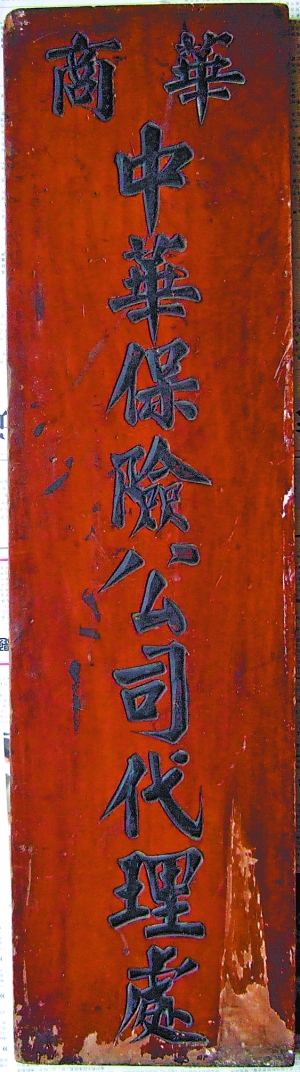 華商
中華保險公司代理處